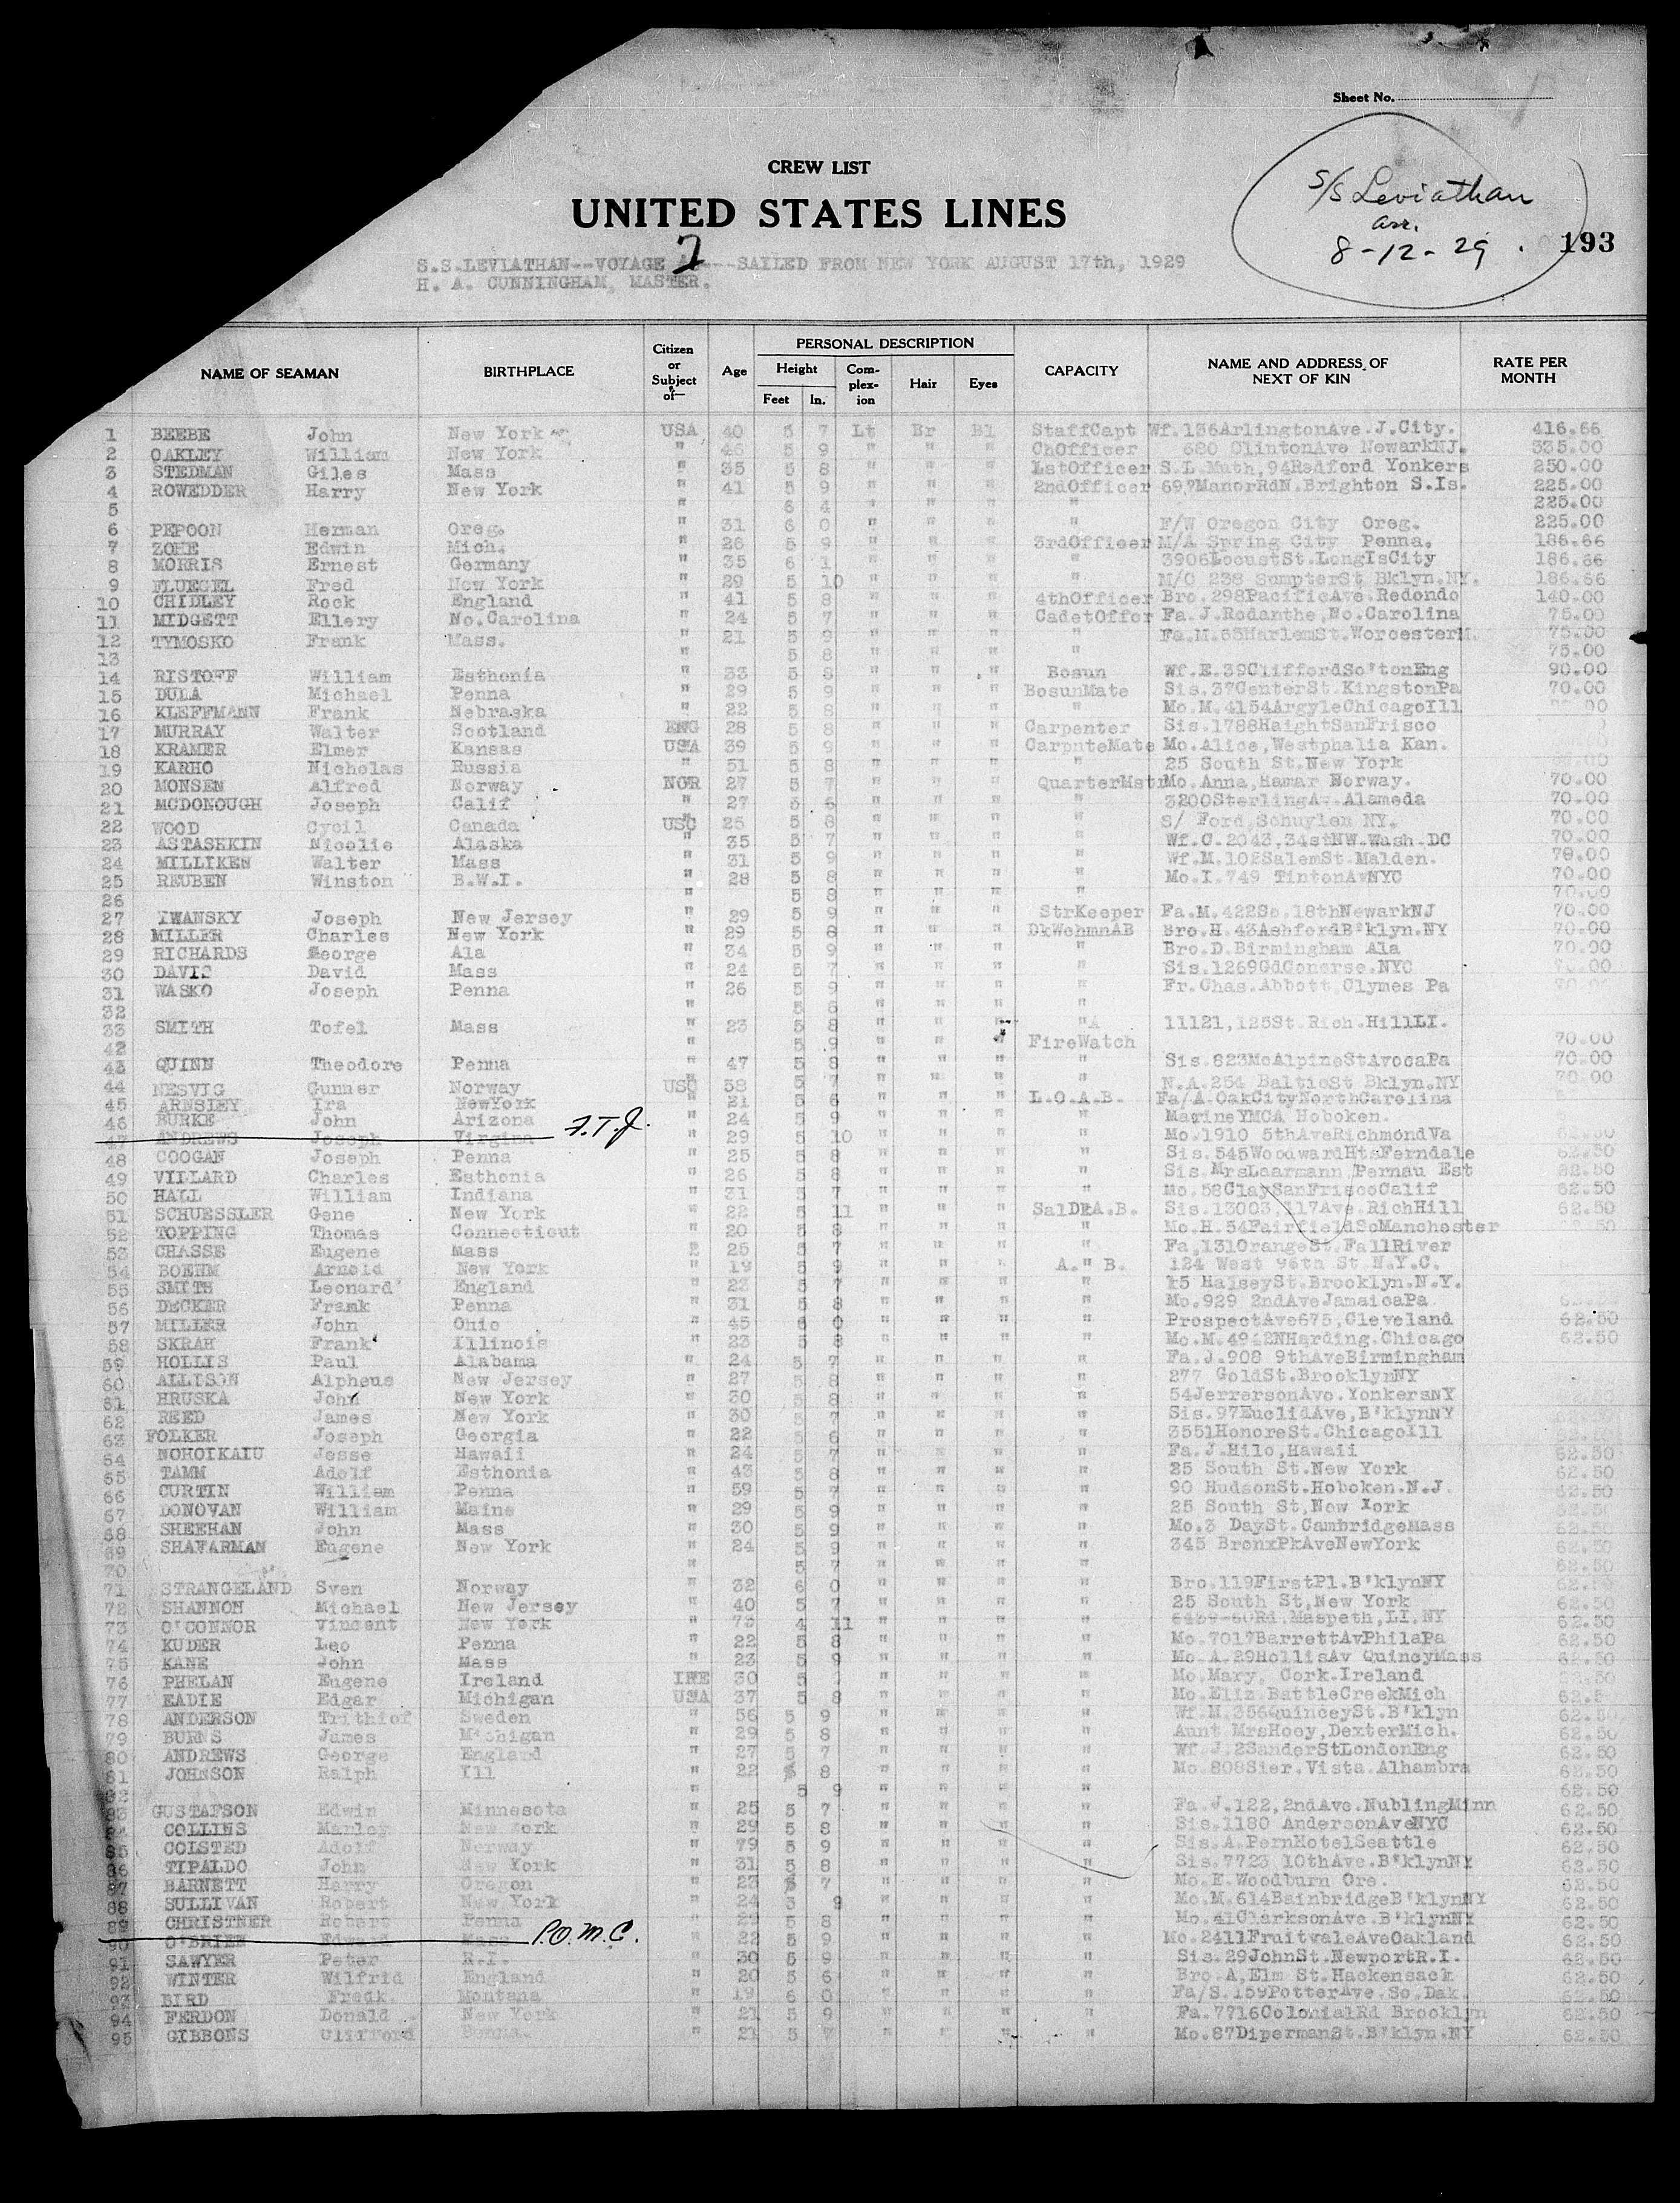 Sheet No.
CREW LIST
UNITED STATES LINES
S/S Leviathan
arr.
8-12-29
193
S.S.LEVIATHAN--VOYAGE ---SAILED FROM NEW YORK AUGUST 17th, 1929
H. A. CUNNINGHAM, MASTER.
NAME OF SEAMAN BIRTHPLACE Citizen or Subject of— Age PERSONAL DESCRIPTION Height Feet In. Com-plex-ion Hair Eyes CAPACITY NAME AND ADDRESS OF NEXT OF KIN RATE PER MONTH
1 BEEBE John New York USA 40 5 7 Lt Br Bl StaffCapt Wf.136ArlingtonAve.J.City. 416.66
2 OAKLEY William New York " 46 5 9 " " " ChOfficer 680 ClintonAve NewarkNJ. 335.00
3 STEDMAN Giles Mass " 35 5 8 " " " 1stOfficer S.L.Math,94Redford Yonkers 250.00
4 ROWEDDER Harry New York " 41 5 9 " " " 2ndOfficer 697ManorRdN.Brighton S.Is. 225.00
5 " 6 4 " " " " 225.00
6 PEPOON Herman Oreg. " 31 6 0 " " " " F/W Oregon City Oreg. 225.00
7 ZOHE Edwin Mich. " 26 5 9 " " " 3rdOfficer M/A Spring City Penna. 186.66
8 MORRIS Ernest Germany " 35 6 1 " " " " 3906LocustSt.LongIsCity 186.66
9 FLUEGEL Fred New York " 29 5 10 " " " " M/O 238 SumpterSt Bklyn.NY. 186.66
10 CHIDLEY Rock England " 41 5 8 " " " 4thOfficer Bro.298PacificAve.Redondo 140.00
11 MIDGETT Ellery No.Carolina " 24 5 7 " " " CadetOffcr Fa.J.Rodanthe,No.Carolina 75.00
12 TYMOSKO Frank Mass. " 21 5 9 " " " " Fa.M.65HarlemSt.WorcesterM. 75.00
13 " 5 8 " " " " 75.00
14 RISTOFF William Esthonia " 33 5 8 " " " Bosun Wf.E.39CliffordSo'tonEng 90.00
15 DULA Michael Penna " 29 5 9 " " " BosunMate Sis.37CenterSt.KingstonPa 70.00
16 KLEFFMANN Frank Nebraska " 22 5 8 " " " " Mo.M.4154ArgyleChicagoIll
17 MURRAY Walter Scotland ENG 28 5 8 " " " Carpenter Sis.1788HaightSanFrisco
18 KRAMER Elmer Kansas USA 39 5 9 " " " CarpnteMate Mo.Alice,Westphalia Kan.
19 KARHO Nicholas Russia " 51 5 8 " " " " 25 South St.New York
20 MONSEN Alfred Norway NOR 27 5 7 " " " QuarterMstr Mo.Anna,Hamar Norway. 70.00
21 MCDONOUGH Joseph Calif " 27 5 6 " " " " 3200SterlingAv.Alameda 70.00
22 WOOD Cycil Canada USC 25 5 8 " " " " S/ Ford,Schuyler NY. 70.00
23 ASTASHKIN Nicolie Alaska " 35 5 7 " " " " Wf.C.2043,34stNW.Wash.DC 70.00
24 MILLIKEN Walter Mass " 31 5 9 " " " " Wf.M.102SalemSt.Malden. 70.00
25 REUBEN Winston B.W.I. " 28 5 8 " " " " Mo.I.749 TintonAvNYC 70.00
26 " 5 8 " " " " 70.00
27 IWANSKY Joseph New Jersey " 29 5 9 " " " StrKeeper Fa.M.422So.18thNewarkNJ 70.00
28 MILLER Charles New York " 29 5 8 " " " DkWchmnAB Bro.H.43AshfordB'klyn.NY 70.00
29 RICHARDS George Ala " 34 5 9 " " " " Bro.D.Birmingham Ala 70.00
30 DAVIS David Mass " 24 5 7 " " " " Sis.1269GdConcrse.NYC
31 WASKO Joseph Penna " 26 5 9 " " " " Fr.Chas.Abbott,Clymes Pa
32 " 5 6 " " " "
33 SMITH Tofel Mass " 23 5 8 " " " "A 11121,125St.Rich.HillLI.
42 " 5 9 " " " FireWatch 70.00
43 QUINN Theodore Penna " 47 5 8 " " " " Sis.823McAlpineStAvocaPa 70.00
44 NESVIG Gunner Norway USC 38 5 7 " " " " N.A.254 BalticSt Bklyn.NY 70.00
45 ARNSLEY Ira NewYork " 21 5 6 " " " L.O.A.B. Fa/A.OakCityNorthCarolina
46 BURKE John Arizona F.T.J. " 24 5 9 " " " " MarineYMCA Hoboken.
47 ANDREWS Joseph Virgina " 29 5 10 " " " " Mo.1910 5thAveRichmondVa
48 COOGAN Joseph Penna " 25 5 8 " " " " Sis.545WoodwardHtsFerndale 62.50
49 VILLARD Charles Esthonia " 26 5 8 " " " " Sis.MrsLaarmann,Pernau Est 62.50
50 HALL William Indiana " 31 5 7 " " " " Mo.58ClaySanFriscoCalif 62.50
51 SCHUESSLER Gene New York " 22 5 11 " " " SalDkA.B. Sis.13003,117Ave.RichHill 62.50
52 TOPPING Thomas Connecticut " 20 5 8 " " " " Mo.H.54FairfieldSoManchester
53 CHASSE Eugene Mass " 25 5 7 " " " " Fa,131OrangeSt.FallRiver
54 BOEHM Arnold New York " 19 5 9 " " " A." B. 124 West 96th St.N.Y.C.
55 SMITH Leonard England " 23 5 7 " " " " 15 HalseySt.Brooklyn.N.Y.
56 DECKER Frank Penna " 31 5 8 " " " " Mo.929 2ndAveJamaicaPa
57 MILLER John Ohio " 45 6 0 " " " " ProspectAve675,Cleveland 62.50
58 SKRAH Frank Illinois " 23 5 8 " " " " Mo.M.4942NHarding.Chicago 62.50
59 HOLLIS Paul Alabama " 24 5 7 " " " " Fa.J.908 9thAveBirmingham
60 ALLISON Alpheus New Jersey " 27 5 8 " " " " 277 GoldSt.BrooklynNY
61 HRUSKA John New York " 30 5 8 " " " " 54JeffersonAve.YonkersNY
62 REED James New York " 30 5 7 " " " " Sis.97EuclidAve,B'klynNY
63 FOLKER Joseph Georgia " 22 5 6 " " " " 3551HonoreSt.ChicagoIll
64 NOHOIKAIU Jesse Hawaii " 24 5 7 " " " " Fa.J.Hilo,Hawaii 62.50
65 TAMM Adolf Esthonia " 43 5 8 " " " " 25 South St.New York 62.50
66 CURTIN William Penna " 59 5 7 " " " " 90 HudsonSt.Hoboken.N.J. 62.50
67 DONOVAN William Maine " 29 5 9 " " " " 25 South St,New York 62.50
68 SHEEHAN John Mass " 30 5 9 " " " " Mo.3 DaySt.CambridgeMass 62.50
69 SHAVARMAN Eugene New York " 24 5 9 " " " " 345 BronxPkAveNewYork 62.50
70 " 5 7 " " " " 62.50
71 STRANGELAND Sven Norway " 32 6 0 " " " " Bro.119FirstPl.B'klynNY 62.50
72 SHANNON Michael New Jersey " 40 5 7 " " " " 25 South St,New York 62.50
73 O'CONNOR Vincent New York " 73 4 11 " " " " 6459-60Rd.Maspeth,LI.NY 62.50
74 KUDER Leo Penna " 22 5 8 " " " " Mo.7017BarrettAvPhilaPa 62.50
75 KANE John Mass " 23 5 9 " " " " Mo.A.29HollisAv QuincyMass 62.50
76 PHELAN Eugene Ireland IRE 30 5 " " " " Mo.Mary, Cork.Ireland
77 EADIE Edgar Michigan USA 37 5 8 " " " " Mo.Eliz.BattleCreekMich
78 ANDERSON Trithiof Sweden " 56 5 9 " " " " Wf.M.356QuinceySt.B'klyn 62.50
79 BURNS James Michigan " 29 5 8 " " " " Aunt MrsHoey,DexterMich. 62.50
80 ANDREWS George England " 27 5 7 " " " " Wf.J.2SanderStLondonEng 62.50
81 JOHNSON Ralph Ill " 22 5 8 " " " " Mo.808Sier.Vista.Alhambra 62.50
82 " 5 9 " " " " 62.50
83 GUSTAFSON Edwin Minnesota " 25 5 7 " " " " Fa.J.122,2ndAve.NublingMinn 62.50
84 COLLINS Manley New York " 29 5 8 " " " " Sis.1180 AndersonAveNYC 62.50
85 COLSTED Adolf Norway " 79 5 9 " " " " Sis.A.PernHotelSeattle 62.50
86 TIPALDO John New York " 31 5 8 " " " " Sis.7723 10thAve.B'klynNY 62.50
87 BARNETT Harry Oregon " 23 5 7 " " " " Mo.E.Woodburn Ore. 62.50
88 SULLIVAN Robert New York " 24 5 9 " " " " Mo.M.614BainbridgeB'klynNY 62.50
89 CHRISTNER Robert Penna P.O.M.C. " 5 8 " " " " Mo.41ClarksonAve.B'klynNY 62.50
90 O'BRIEN Edward Mass " 22 5 9 " " " " Mo.2411FruitvaleAveOakland 62.50
91 SAWYER Peter R.I. " 30 5 9 " " " " Sis.29JohnSt.NewportR.I. 62.50
92 WINTER Wilfrid England " 20 5 6 " " " " Bro.A,Elm St.Hackensack 62.50
93 BIRD Fredk. Montana " 19 6 0 " " " " Fa/S.159PotterAve.So.Dak. 62.50
94 FERDON Donald New York " 21 5 9 " " " " Fa.7716ColonialRd Brooklyn 62.50
95 GIBBONS Clifford Penna. " 21 5 7 " " " " Mo.87DipermanSt.B'klyn.NY 62.50